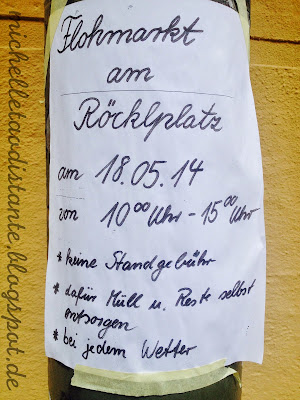 Flohmarkt
am
Röcklplatz
am 18.05.14
von 10⁰⁰ Uhr - 15⁰⁰ Uhr
* keine Standgebühr
* dafür Müll u. Reste selbst
entsorgen
* bei jedem Wetter
michelletaodistante.blogspot.de